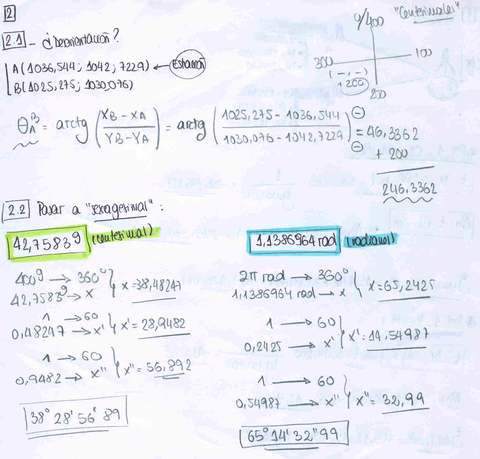 2
"Centesimales"
0/400
300
100
(-,-)
+200
200
2.1 - ¿Desorientación?
A (1036,544; 1042,7229) ← Estación
B (1025,275; 1030,076)
θ_A^B = arctg (X_B - X_A / Y_B - Y_A) = arctg (1025,275 - 1036,544 / 1030,076 - 1042,7229) = 46,3362
+ 200
246,3362
2.2 Pasar a "sexagesimal":
42,7583g (centesimal)
400g → 360°
42,7583g → x
x = 38,48247
1 → 60
0,48247 → x'
x' = 28,9482
1 → 60
0,9482 → x''
x'' = 56,892
38° 28' 56'' 89
1,1386964 rad (radianes)
2π rad → 360°
1,1386964 rad → x
x = 65,2425
1 → 60
0,2425 → x'
x' = 14,54987
1 → 60
0,54987 → x''
x'' = 32,99
65° 14' 32'' 99